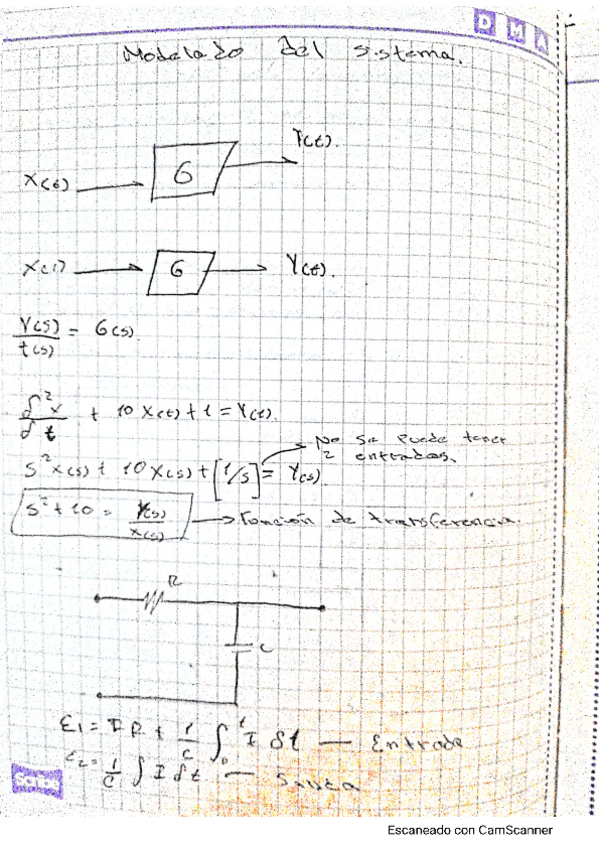 D M A
Modelado del sistema.
Y(t).
X(t) → G
X(t) → G → Y(t).
Y(s)/t(s) = G(s).
δ²x/δt + 10 X(t) + 1 = Y(t).
No se puede tener
2 entradas.
S² X(s) + 10 X(s) + [1/s] = Y(s)
S² + 10 = Y(s)/X(s) → Función de transferencia.
R
C
E1 = I R + 1/C ∫₀ᵗ I δt — Entrada
E2 = 1/C ∫ I δt — Salida
Scribe
Escaneado con CamScanner